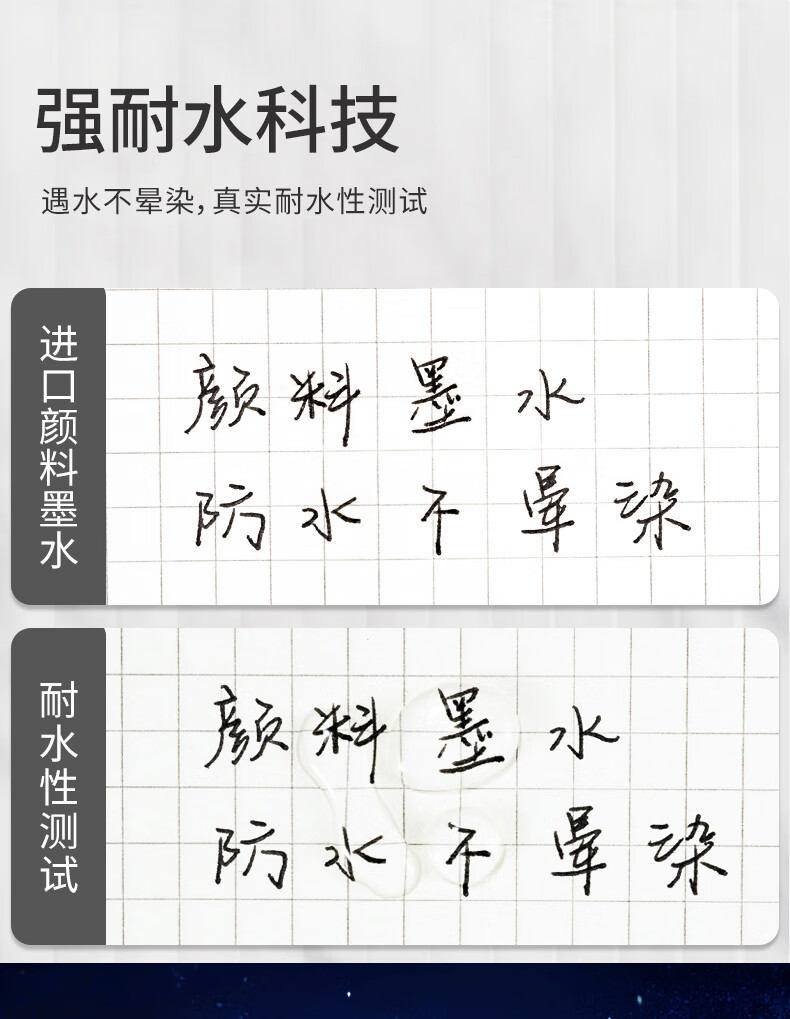 强耐水科技
遇水不晕染,真实耐水性测试
进口颜料墨水
颜料墨水
防水不晕染
耐水性测试
颜料墨水
防水不晕染